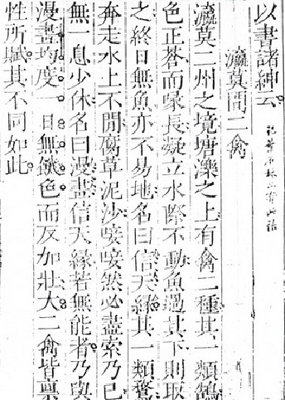 以書諸紳云
瀛莫間二禽
瀛莫二州之境塘濼之上有禽二種其一類鵠
色正蒼而喙長凝立水際不動魚過其下則取
之終日無魚亦不易地名曰信天緣其一類鶩
奔走水上不閒腐草泥沙唼唼然必盡索乃已
無一息少休名曰漫畫信天緣若無能者乃與
漫畫均度一日無饑色而反加壯大二禽皆稟
性所賦其不同如此